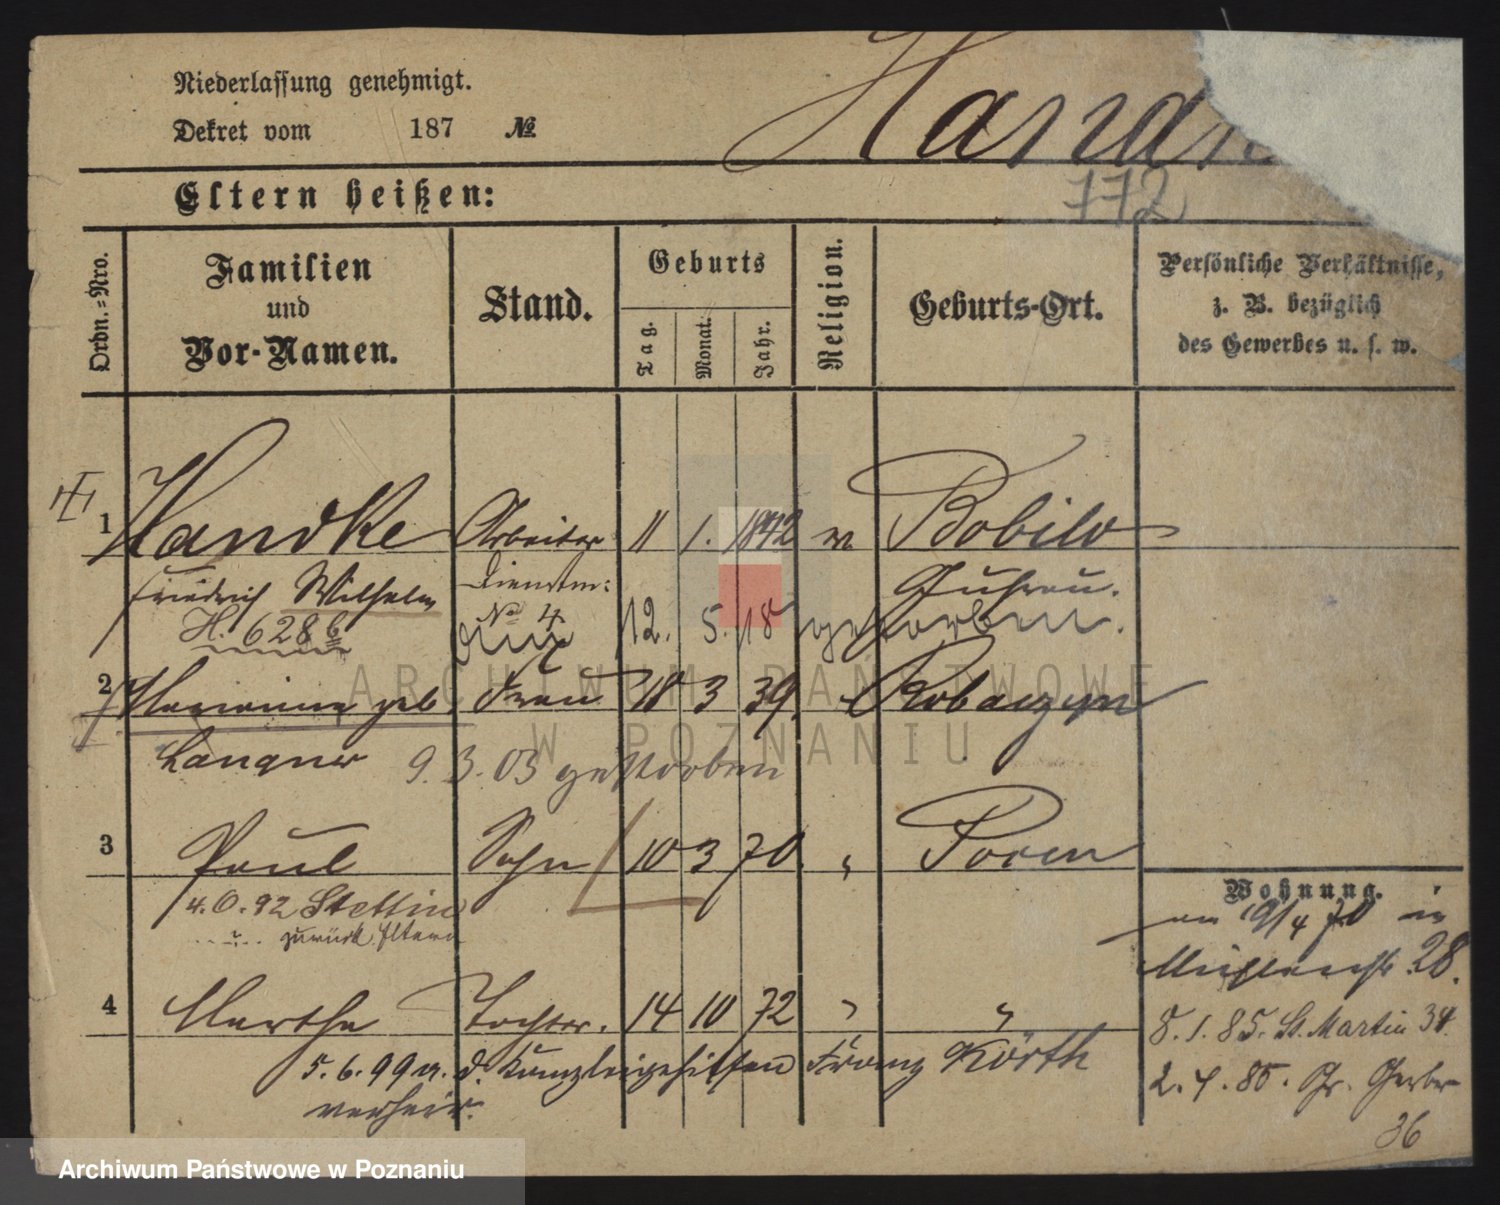 Niederlassung genehmigt.
Dekret vom 187 №
Hand
772
Eltern heißen:
Ordn.-Nro.
Familien und Vor-Namen.
Stand.
Geburts
Tag. Monat. Jahr.
Religion.
Geburts-Ort.
Persönliche Verhältnisse,
z. B. bezüglich
des Gewerbes u. s. w.
1 Handke Arbeiter 11 1. 1842 Bobilo
Friedrich Wilhelm Dienstm: Guhrau.
H. 628 b № 4
12. 5. 18 gestorben.
2 Marianna geb. Frau 18 3 39.
Langner 9. 3. 03 gestorben
3 Paul Sohn 10 3 70. " Posen
4. 0. 92 Stettin
zurück Eltern
Wohnung.
am 19/4 70 in
28.
4 Martha Tochter. 14 10 72 " "
8. 1. 85. St. Martin 34.
5. 6. 99 m. d. Kanzleigehilfen Franz Körth
verheir.
2. 4. 86. Gr. Gerber
36
ARCHIWUM PAŃSTWOWE
W POZNANIU
Archiwum Państwowe w Poznaniu